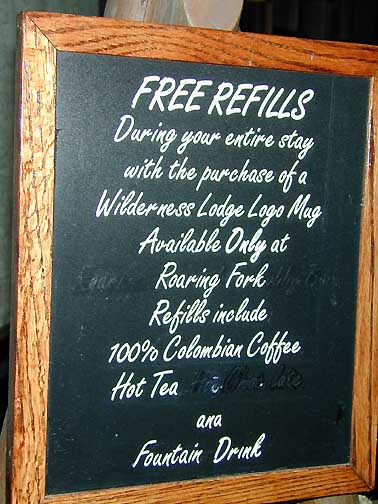 FREE REFILLS
During your entire stay
with the purchase of a
Wilderness Lodge Logo Mug
Available Only at
Roaring Fork
Refills include
100% Colombian Coffee
Hot Tea
ana
Fountain Drink